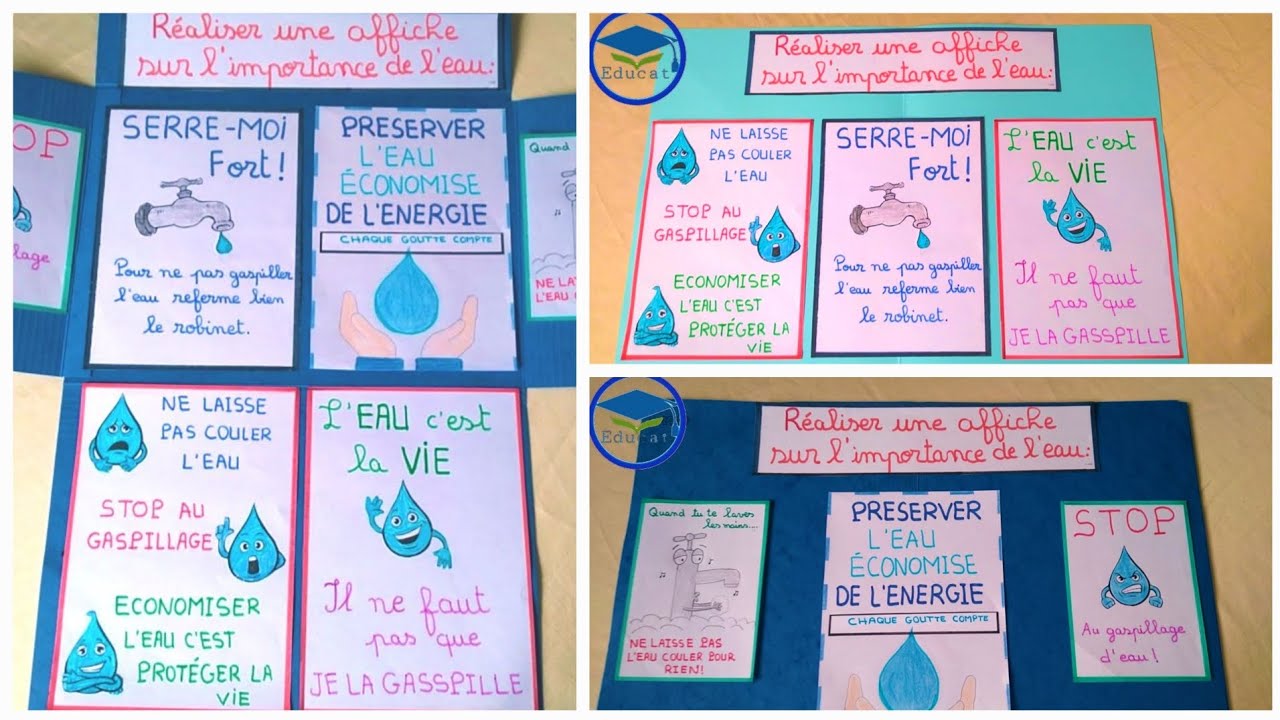 Réaliser une affiche
sur l'importance de l'eau:
OP
llage
SERRE-MOI
Fort!
Pour ne pas gaspiller
l'eau referme bien
le robinet.
PRESERVER
L'EAU
ÉCONOMISE
DE L'ENERGIE
CHAQUE GOUTTE COMPTE
Quand
NE LA
L'EAU
NE LAISSE
PAS COULER
L'EAU
STOP AU
GASPILLAGE
ECONOMISER
L'EAU C'EST
PROTÉGER LA
VIE
L'EAU c'est
la VIE
Il ne faut
pas que
JE LA GASSPILLE
Educat
Réaliser une affiche
sur l'importance de l'eau:
NE LAISSE
PAS COULER
L'EAU
STOP AU
GASPILLAGE
ECONOMISER
L'EAU C'EST
PROTÉGER LA
VIE
SERRE-MOI
Fort!
Pour ne pas gaspiller
l'eau referme bien
le robinet.
L'EAU c'est
la VIE
Il ne faut
pas que
JE LA GASSPILLE
Educat
Réaliser une affiche
sur l'importance de l'eau:
Quand tu te laves
les mains...
NE LAISSE PAS
L'EAU COULER POUR
RIEN!
PRESERVER
L'EAU
ÉCONOMISE
DE L'ENERGIE
CHAQUE GOUTTE COMPTE
STOP
Au gaspillage
d'eau!